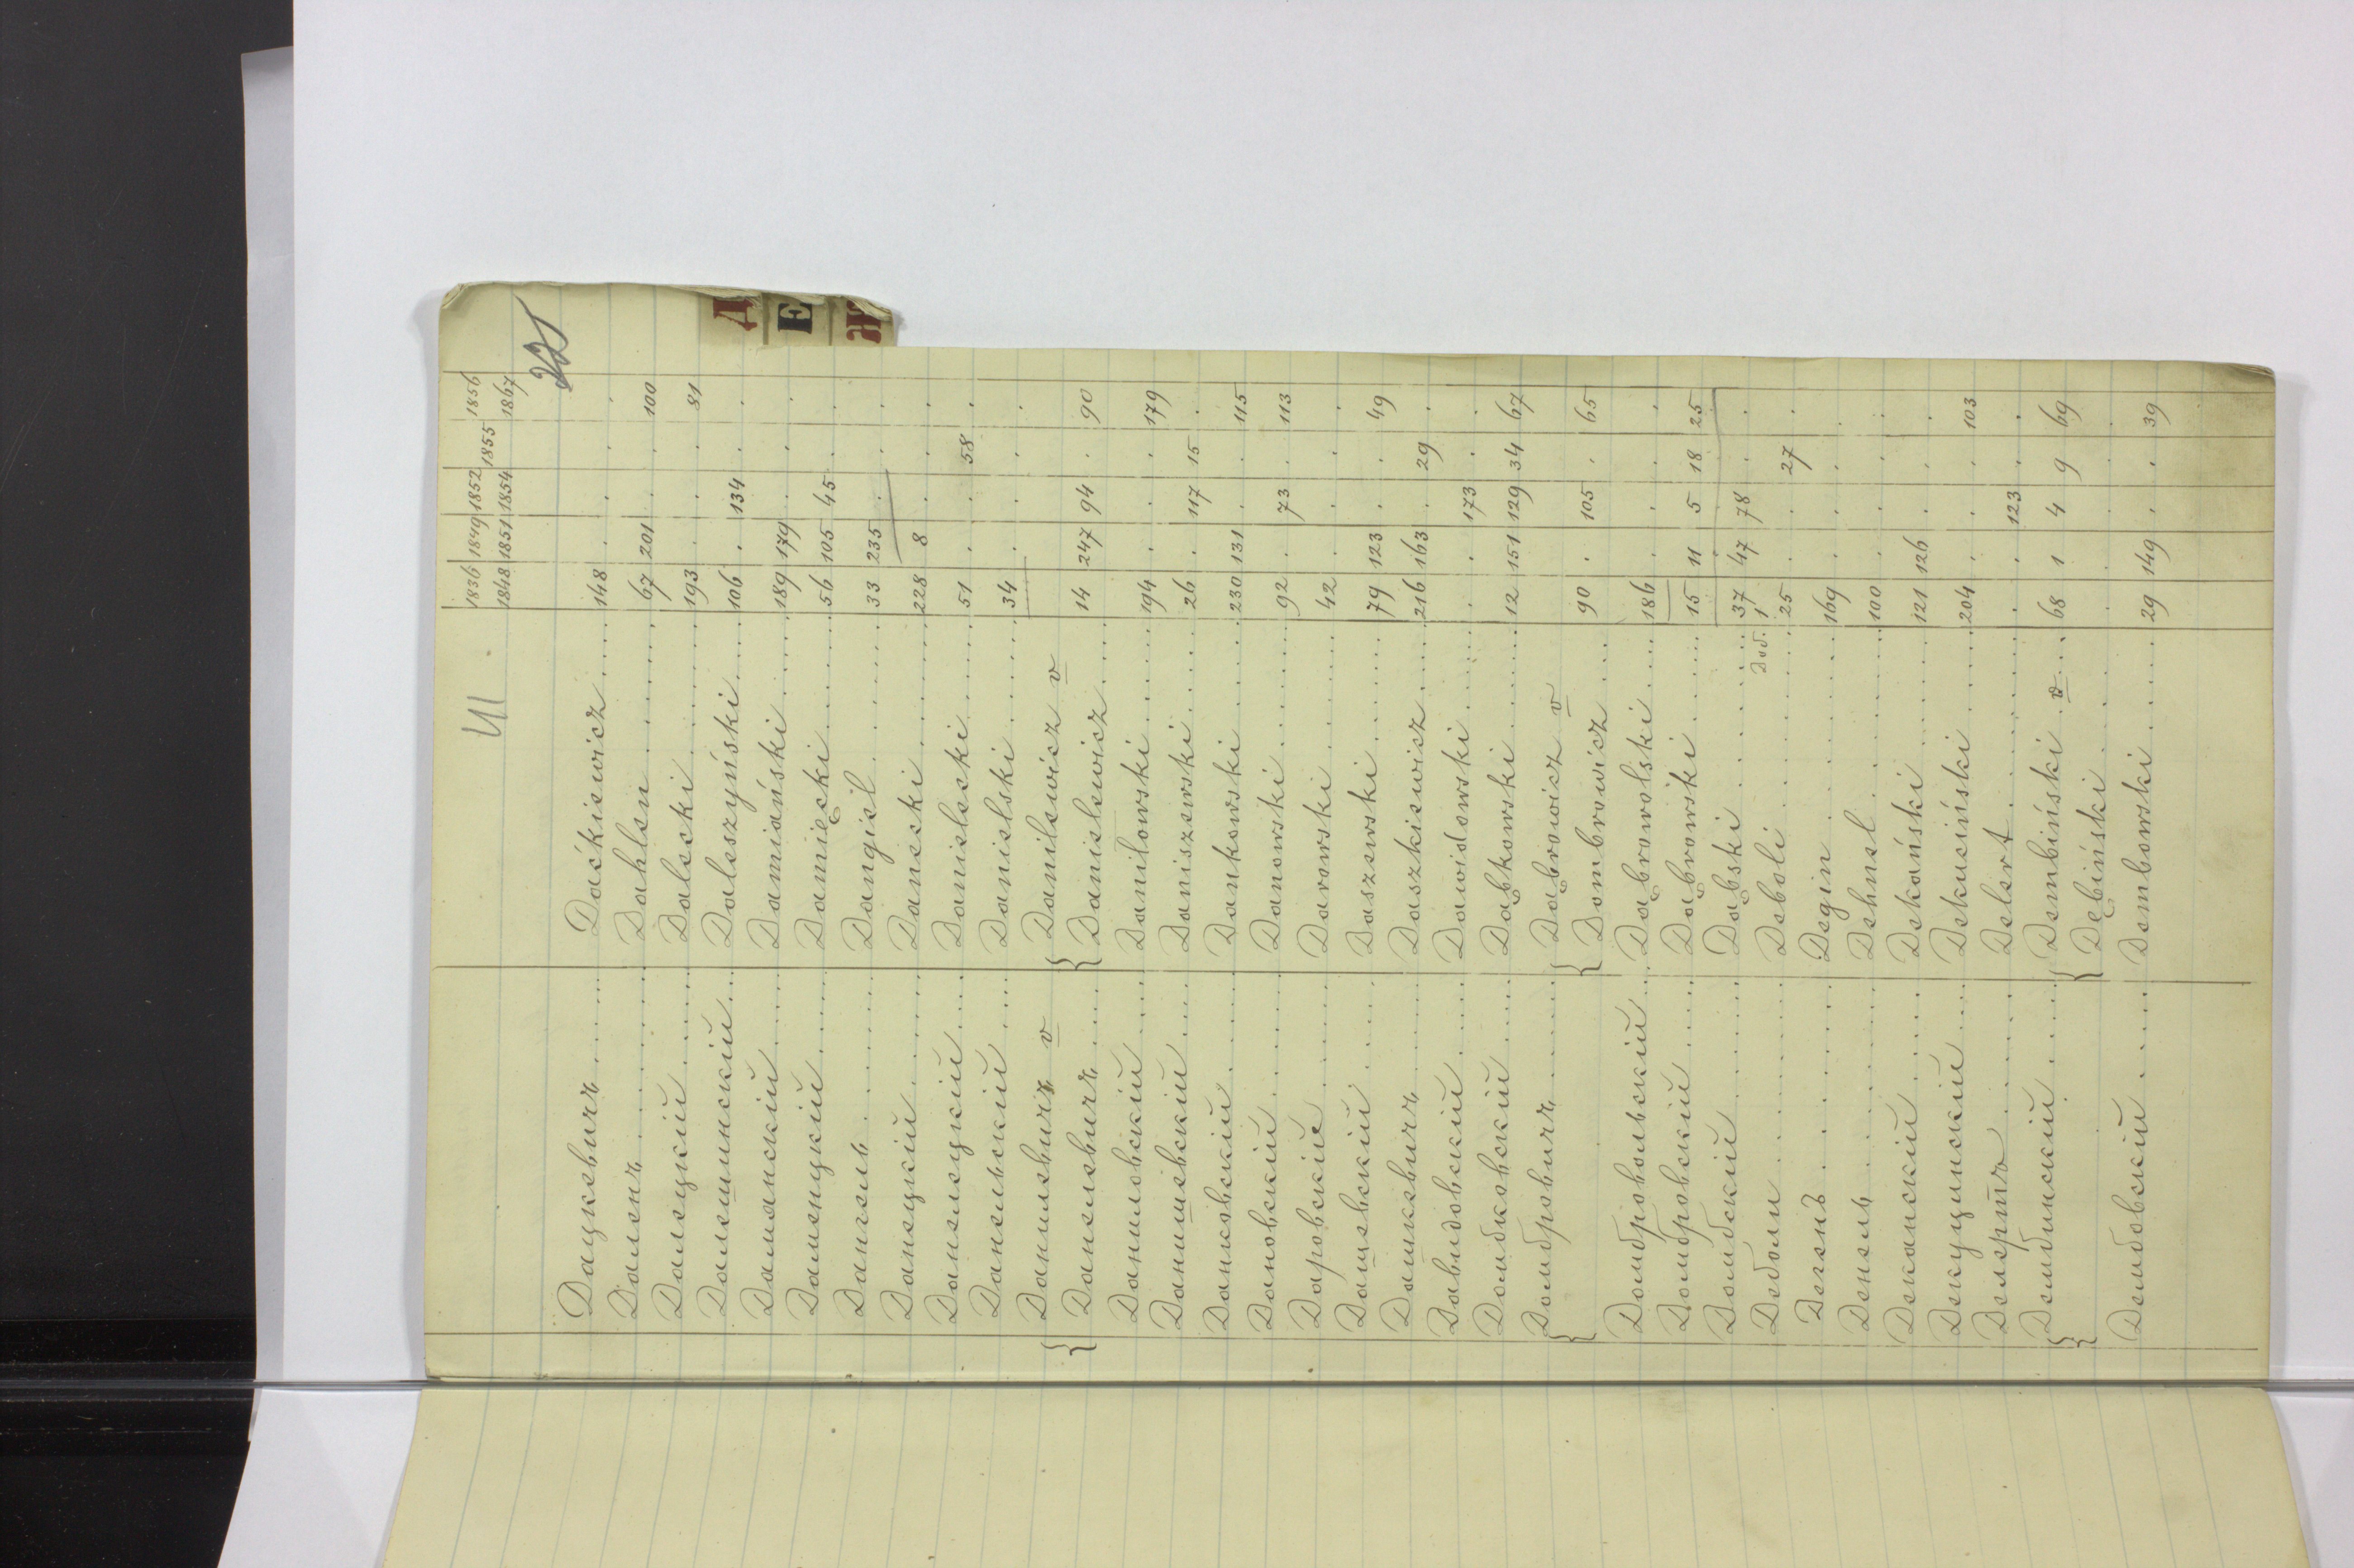 1836 1849 1852 1855 1856
1848 1851 1854 1867
Д
Е
Ж
Дацкевичъ Daćkiewicz 148 . . . .
Даленъ Dahlen 67 201 . . 100
Далецкій Dalecki 193 . . . 81
Далешинскій Daleszyński 106 . 134 . .
Даміанскій Damiański 189 179 . . .
Даменцкій Damięcki 56 105 45 . .
Дангель Dangiel 33 235 . . .
Данецкій Danecki 228 8 . . .
Данелецкій Danielecki 51 . . 58 .
Данельскій Danielski 34 . . . .
Данилевичъ v Danilewicz v
Данелевичъ Danielewicz 14 247 94 . 90
Даниловскій Daniłowski 194 . . . 179
Данишевскій Daniszewski 26 . 117 15 .
Данковскій Dankowski 230 131 . . 115
Дановскій Danowski 92 . 73 . 113
Даровскій Darowski 42 . . . .
Дашевскій Daszewski 79 123 . . 49
Дашкевичъ Daszkiewicz 216 163 . 29 .
Давидовскій Dawidowski . . 173 . .
Домбковскій Dąbkowski 12 151 129 34 67
Домбровичъ Dąbrowicz v
Dombrowicz 90 . 105 . 65
Домбровольскій Dąbrowolski 186 . . . .
Домбровскій Dąbrowski 15 11 5 18 25
Домбскій Dąbski 37 47 78 . .
доб. 1
Деболи Deboli 25 . . 27 .
Дегенъ Degin 169 . . . .
Денель Dehnel 100 . . . .
Деканскій Dekański 121 126 . . .
Декуцинскій Dekuciński 204 . . . 103
Делертъ Delert . . 123 . .
Дембинскій Dembiński v 68 1 4 9 69
Dębiński
Дембовскій Dembowski 29 149 . . 39